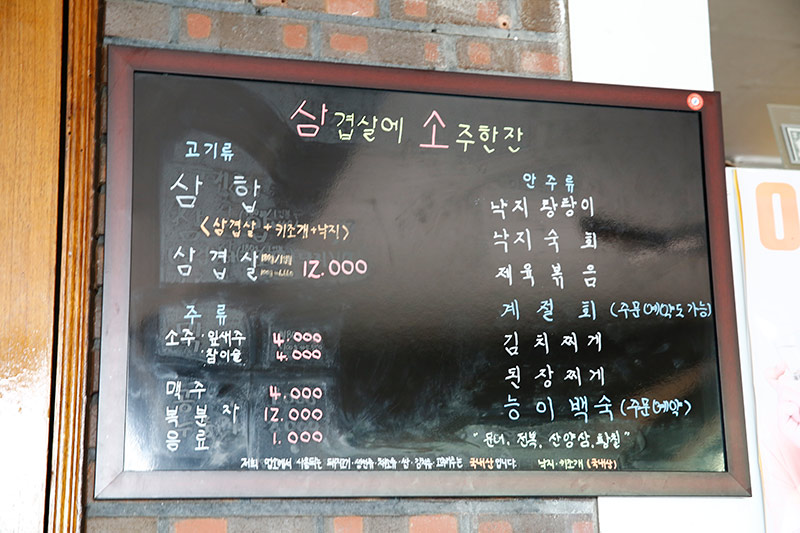 삼겹살에 소주한잔
고기류
삼 합
<삼겹살 + 키조개 + 낙지>
삼 겹 살 12.000
주 류
소주 · 잎새주 4.000
참이슬 4.000
맥주 4.000
복분자 12.000
음료 1.000
안 주 류
낙지 탕탕이
낙지 숙 회
제 육 볶 음
계 절 회 (주문(예약도 가능)
김 치 찌 게
된 장 찌 게
능 이 백 숙 (주문(예약)
" 문어, 전복, 산양삼, 토종닭 "
저희 업소에서 사용되는 돼지고기 · 쌀 · 김치 국내산입니다. 낙지 · 키조개 (국내산)